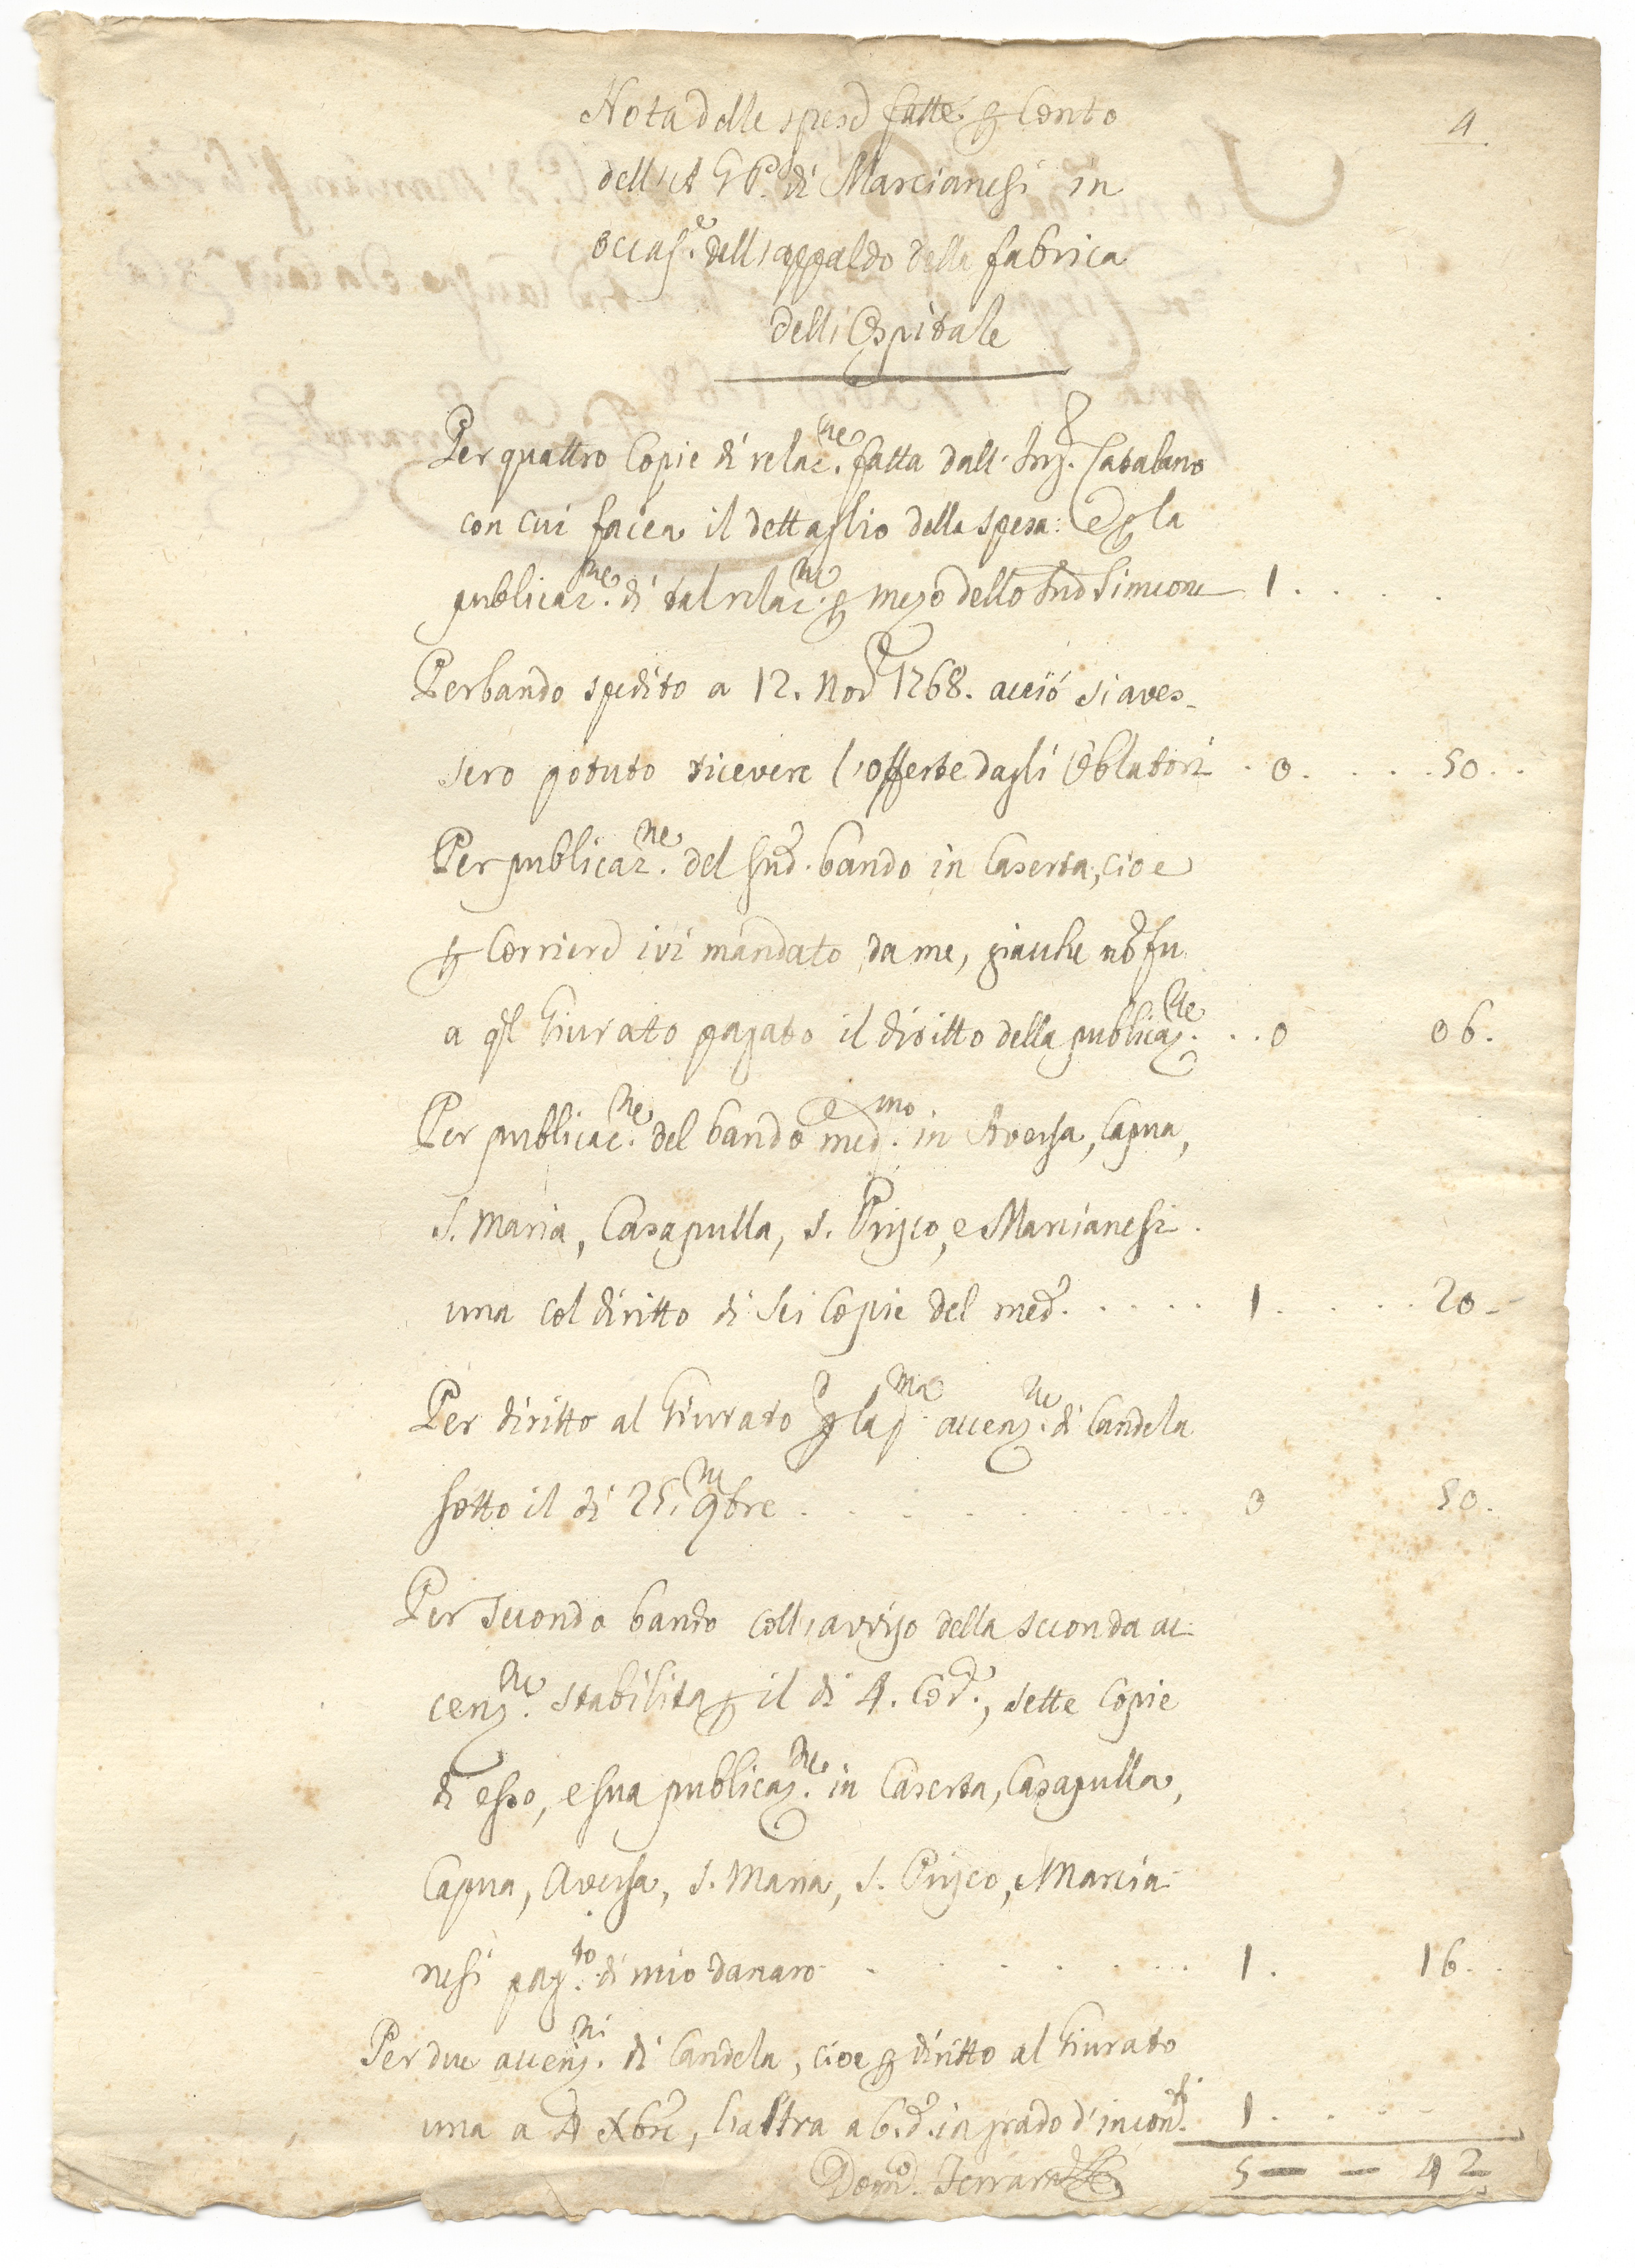 4
Nota delle spese fatte per Conto
dell'A G P. di Marcianesi in
occas.e dell'appaldo della fabrica
dell'Ospidale
Per quattro Copie di relac.ne fatta dall'Ing. Catalano
con cui facea il dettaglio della spesa: e per la
publicaz.ne di tal relac.ne per mezo dello Simeone 1. . . .
Per bando spedito a 12. Nov 1768. acciò si aves-
sero potuto ricevere l'offerte dagli Oblatori . 0. . . . 50. .
Per publicaz.ne del sud. bando in Caserta, cioe
per Corriere ivi mandato da me, giacche no fu
a ql Giurato pagato il diritto della publicaz.ne . . 0 06.
Per publicac.ne del bando med.mo in Aversa, Capua,
S. Maria, Casapulla, S. Prisco, e Marcianesi.
una col diritto di sei Copie del med. . . . . 1. . . . 20.
Per diritto al Giurato per la p.ma accenz.ne di Candela
sotto il di 25. 9bre . . . . . . . 0 50.
Per secondo bando coll'avviso della seconda ac-
cenz.ne stabilita per il di 4. Cor., sette Copie
di esso, e sua publicaz.ne in Caserta, Casapulla,
Capua, Aversa, S. Maria, S. Prisco, e Marcia-
nesi pag.to di mio danaro . . . . . . 1. 16. .
Per due accenz.ni di Candela, cioe per diritto al Giurato
una a 4 Xbre, l'altra a 6. d. in grado d'incon.ti 1. . . .
Dom. Ferraro 5 — — 42